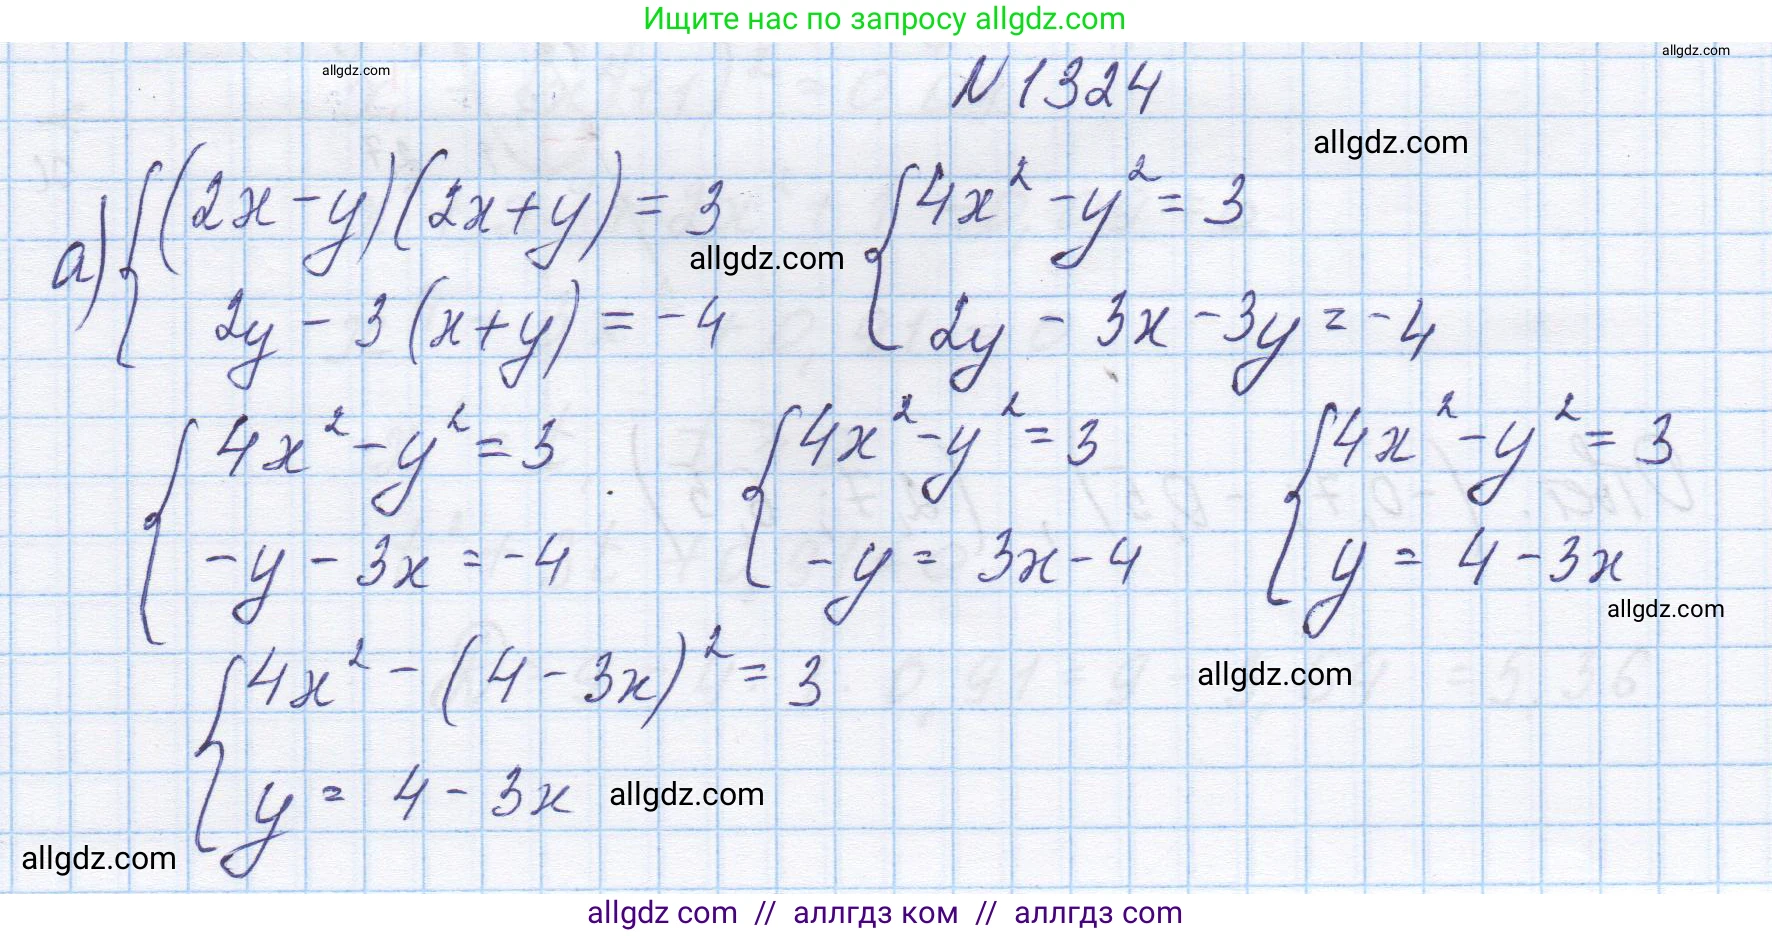 Ищите нас по запросу allgdz.com
allgdz.com
allgdz.com
N 1324
allgdz.com
а) { (2x - y)(2x + y) = 3 { 4x² - y² = 3
allgdz.com
2y - 3(x + y) = -4 2y - 3x - 3y = -4
{ 4x² - y² = 3 { 4x² - y² = 3 { 4x² - y² = 3
-y - 3x = -4 -y = 3x - 4 y = 4 - 3x
allgdz.com
{ 4x² - (4 - 3x)² = 3
allgdz.com
y = 4 - 3x
allgdz.com
allgdz.com
allgdz com // аллгдз ком // аллгдз com